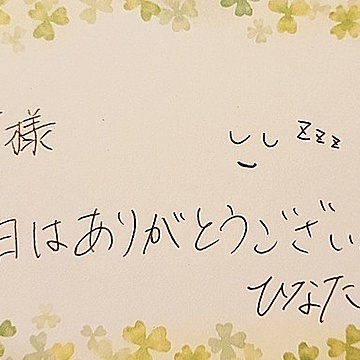 様
zzz
日はありがとうござい
ひなた